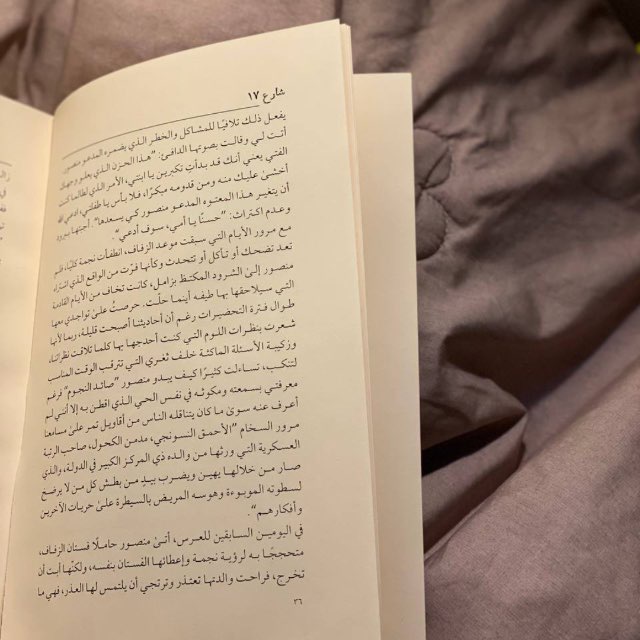 شارع ١٧
يفعل ذلك تلافيًا للمشاكل والخطر الذي يضمره المدعو منصور.
أتت لي وقالت بصوتها الدافئ: "هذا الحزن الذي يعلو وجهك
الفتي يعني أنك قد بدأتِ تكبرين يا ابنتي، الأمر الذي لطالما كنت
أخشى عليك منه ومن قدومه مبكرًا، فلا بأس يا طفلتي، ادعي الله
أن يتغير هذا المعتوه المدعو منصور كي يسعدها". أجبتها ببرود
وعدم اكتراث: "حسنًا يا أمي، سوف أدعي".
مع مرور الأيام التي سبقت موعد الزفاف، انطفأت نجمة كليًا، فلم
تعد تضحك أو تأكل أو تتحدث وكأنها فرّت من الواقع الذي اشتراه
منصور إلى الشرود المكتظ بزامل، كانت تخاف من الأيام القادمة
التي سيلاحقها بها طيفه أينما حلّت. حرصتُ على تواجدي معها
طوال فترة التحضيرات رغم أن أحاديثنا أصبحت قليلة، ربما لأنها
شعرت بنظرات اللوم التي كنت أحدجها بها كلما تلاقت نظراتنا،
وزكيبة الأسئلة الماكثة خلف ثغري التي تترقب الوقت المناسب
لتنكب، تساءلت كثيرًا كيف يبدو منصور "صائد النجوم" فرغم
معرفتي بسمعته ومكوثه في نفس الحي الذي اقطن به إلا أنني لم
أعرف عنه سوى ما كان يتناقله الناس من أقاويل تمر على مسامعنا
مرور السخام "الأحمق النسونجي، مدمن الكحول، صاحب الرتبة
العسكرية التي ورثها من والده ذي المركز الكبير في الدولة، والذي
صار من خلالها يهين ويضرب بيدٍ من بطش كل من لا يرضخ
لسطوته الموبوءة وهوسه المريض بالسيطرة على حريات الآخرين
وأفكارهم".
في اليومين السابقين للعرس، أتى منصور حاملًا فستان الزفاف،
متحججًا به لرؤية نجمة وإعطائها الفستان بنفسه، ولكنّها أبت أن
تخرج، فراحت والدتها تعتذر وترتجي أن يلتمس لها العذر، فهي ما
٣٦